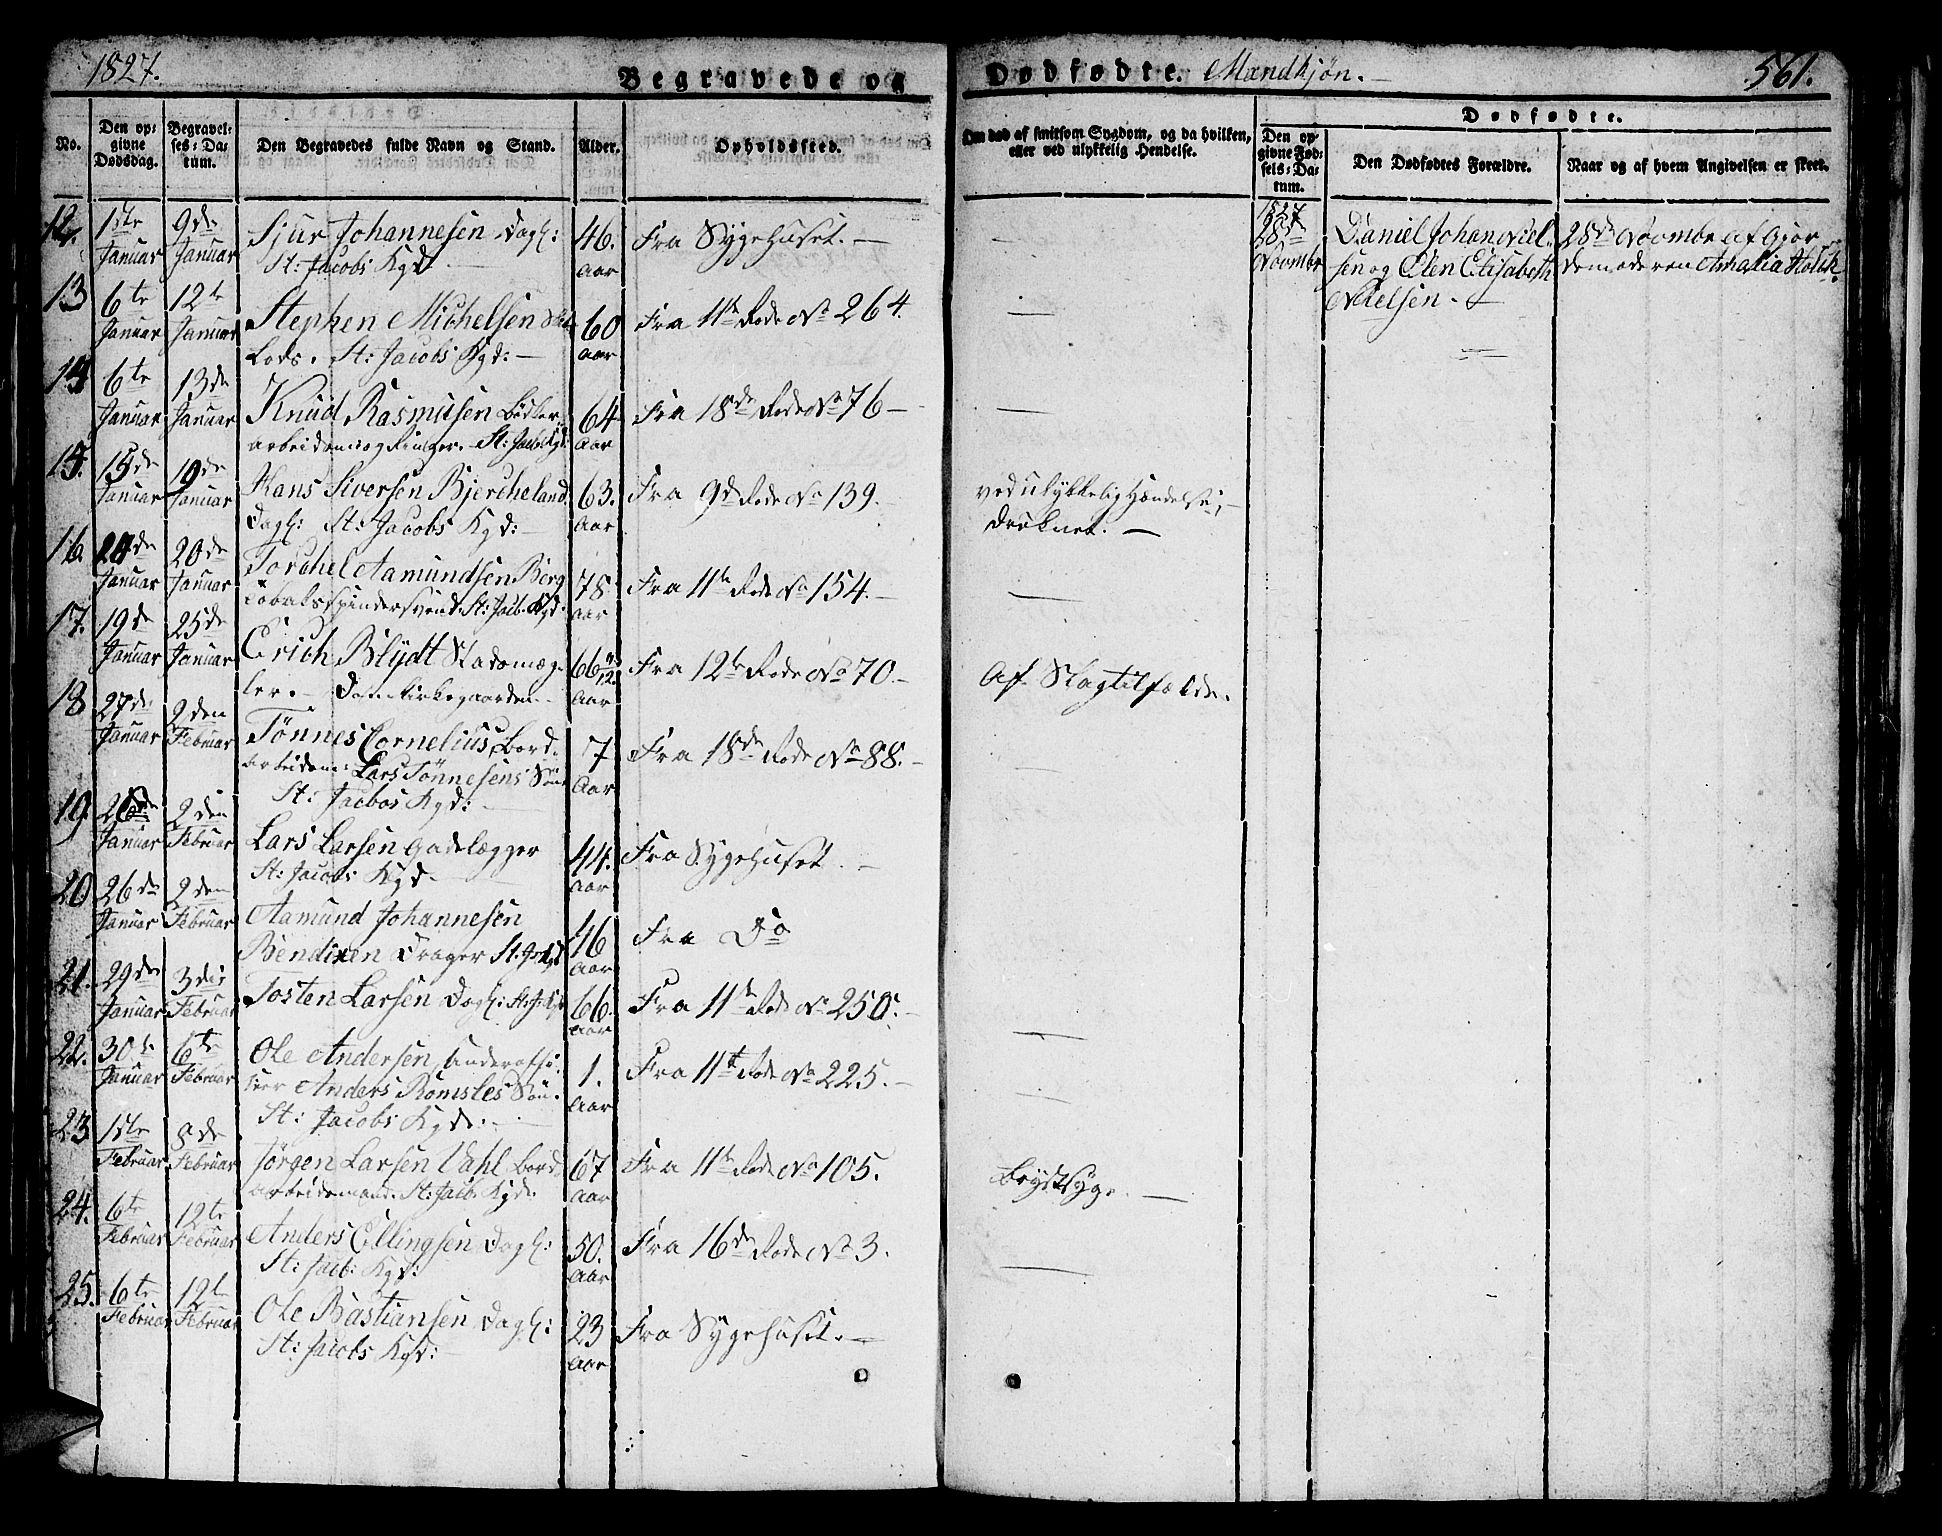 1827.
Begravede og
Dødfødte. Mandkjøn.
561.
No.
Den opgivne Dødsdag.
Begravelses-Datum.
Den Begravedes fulde Navn og Stand.
Alder.
Opholdssted.
Om død af smitsom Sygdom, og da hvilken, eller ved ulykkelig Hendelse.
Dødfødte.
Den opgivne Fødsels-Datum.
Den Dødfødtes Forældre.
Naar og af hvem Angivelsen er skeet.
12. 1ste Januar 9de Januar Sjur Johannesen Dagl: 46. Aar Fra Sygehuset. —
St: Jacobs Kgd
1827 28de Novembr
Daniel Johan Niel-
sen og Elen Elisabeth
Nielsen. —
28de Novembr af Gjor
demoderen Amalia Holck.
13 6te Januar 12te Januar Stephen Michelsen 60 Aar Fra 11te Rode No 264.
Lods. St: Jacobs Kgd: —
14 6te Januar 13de Januar Knud Rasmusen 64 Aar Fra 18de Rode No 76 —
arbeidem: og Ringer. St: Jacobs Kgd:
15. 15de Januar 19de Januar Hans Siversen Bjercheland 63. Aar Fra 9de Rode No 139.
Dagl: St: Jacobs Kgd: —
ved ulykkelig Hændelse,
druknet. —
16. Januar 20de Januar Torchel Aamundsen Berg 78 Aar Fra 11te Rode No 154. —
Tobaksspindersvend. St: Jacb. Kgd:
17. 19de Januar 25de Januar Erich Blydt Stadsmæg- 66 Aar Fra 12te Rode No 70. —
ler. — Domkirkegaarden. —
Af Slagtilfælde.
18 27de Januar 2den Februar Tønnes Cornelius, Bord- 7 Aar Fra 18de Rode No 88. —
arbeidem: Lars Tønnesens Søn
St: Jacbos Kgd:
19. Januar 2den Februar Lars Larsen Gadelægger 44. Aar Fra Sygehuset. —
St: Jacobs Kgd. —
20 26de Januar 2den Februar Aamund Johannesen 46 Aar Fra Do
Bendixen Drager St: Kgd
21. 29de Januar 3die Februar Tosten Larsen Dagl: St: J: Kgd 66. Aar Fra 11te Rode No 250. —
22. 30te Januar 6te Februar Ole Andersen, Underoffi- 1. Aar Fra 11te Rode No 225. —
seer Anders Romsles Søn.
St: Jacobs Kgd: —
23 1ste Februar 8de Februar Jørgen Larsen Vahl Bord- 67 Aar Fra 11te Rode No 105.
arbeidsmand. St: Jacb. Kgd.
Brystsyge. —
24. 6te Februar 12te Februar Anders Ellingsen Dagl: 50. Aar Fra 16de Rode No 3.
St: Jacb: Kgd:
25. 6te Februar 12te Februar Ole Bastiansen Dagl: 23 Aar Fra Sygehuset. —
St: Jacobs Kgd: —